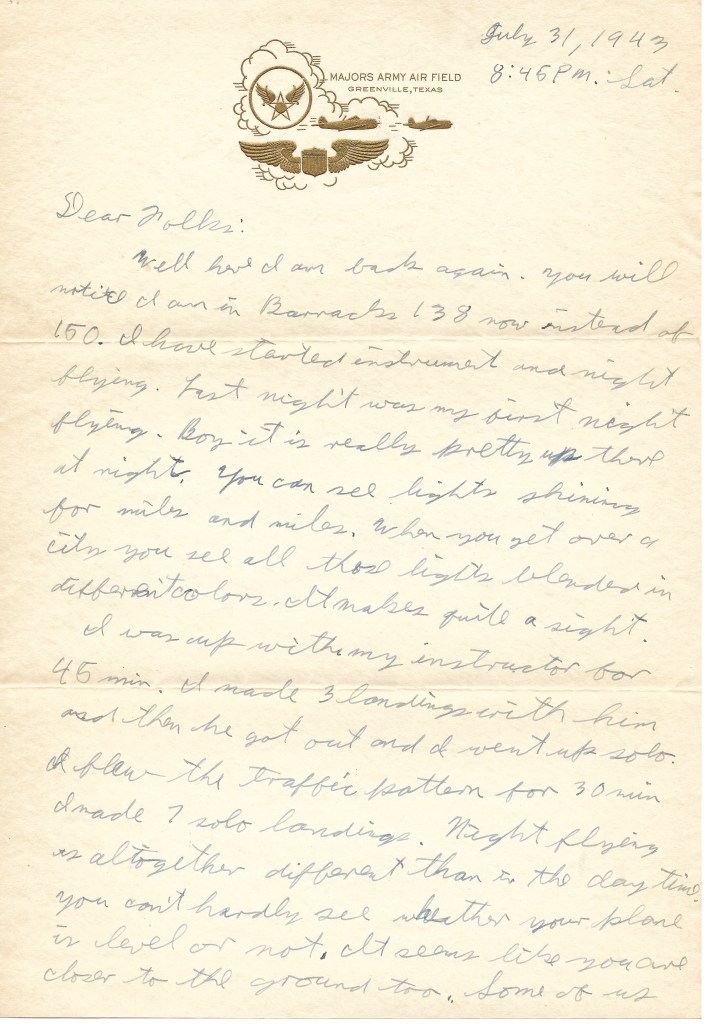 July 31, 1943
8:45 P.M. Sat.
MAJORS ARMY AIR FIELD
GREENVILLE, TEXAS
Dear Folks:
Well here I am back again. You will
notice I am in Barracks 138 now instead of
150. I have started instrument and night
flying. Last night was my first night
flying. Boy it is really pretty up there
at night. You can see lights shining
for miles and miles. When you get over a
city you see all those lights blended in
different colors. It makes quite a sight.
I was up with my instructor for
45 min. I made 3 landings with him
and then he got out and I went up solo.
I flew the traffic pattern for 30 min
I made 7 solo landings. Night flying
is altogether different than in the day time.
You can't hardly see wheather your plane
is level or not. It seems like you are
closer to the ground too. Some of us